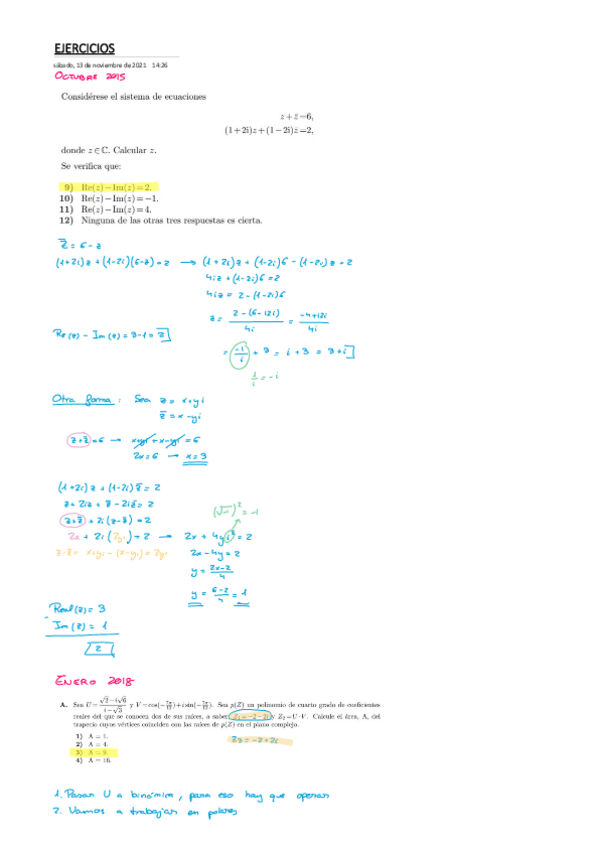 EJERCICIOS
sábado, 13 de noviembre de 2021 14:26
OCTUBRE 2015
Considérese el sistema de ecuaciones
z + z̄ = 6,
(1+2i)z + (1−2i)z̄ = 2,
donde z ∈ ℂ. Calcular z.
Se verifica que:
9) Re(z) − Im(z) = 2.
10) Re(z) − Im(z) = −1.
11) Re(z) − Im(z) = 4.
12) Ninguna de las otras tres respuestas es cierta.
z̄ = 6 - z
(1+2i)z + (1-2i)(6-z) = 2 → (1+2i)z + (1-2i)6 - (1-2i)z = 2
4iz + (1-2i)6 = 2
4iz = 2 - (1-2i)6
z = 2-(6-12i) / 4i = -4+12i / 4i
Re(z) - Im(z) = 3-1 = 2
= -1/i + 3 = i + 3 = 3+i
1/i = -i
Otra forma: Sea z = x+yi
z̄ = x-yi
z+z̄ = 6 → x+yi + x-yi = 6
2x = 6 → x = 3
(1+2i)z + (1-2i)z̄ = 2
z + 2iz + z̄ - 2iz̄ = 2
(√-1)² = -1
z+z̄ + 2i(z-z̄) = 2
2x + 2i(2yi) = 2 → 2x + 4yi² = 2
z-z̄ = x+yi - (x-yi) = 2yi
2x - 4y = 2
y = 2x-2 / 4
y = 6-2 / 4 = 1
Real(z) = 3
Im(z) = 1
2
ENERO 2018
A. Sea U = √2−i√6 / i−√3 y V = cos(−7π/12)+i sin(−7π/12). Sea p(Z) un polinomio de cuarto grado de coeficientes
reales del que se conocen dos de sus raíces, a saber, Z₁ = −2−2i y Z₂ = U·V. Calcule el área, A, del
trapecio cuyos vértices coinciden con las raíces de p(Z) en el plano complejo.
1) A = 1.
2) A = 4.
3) A = 9.
4) A = 16.
= -2+2i
1. Pasar U a binómica, para eso hay que operar
2. Vamos a trabajar en polares